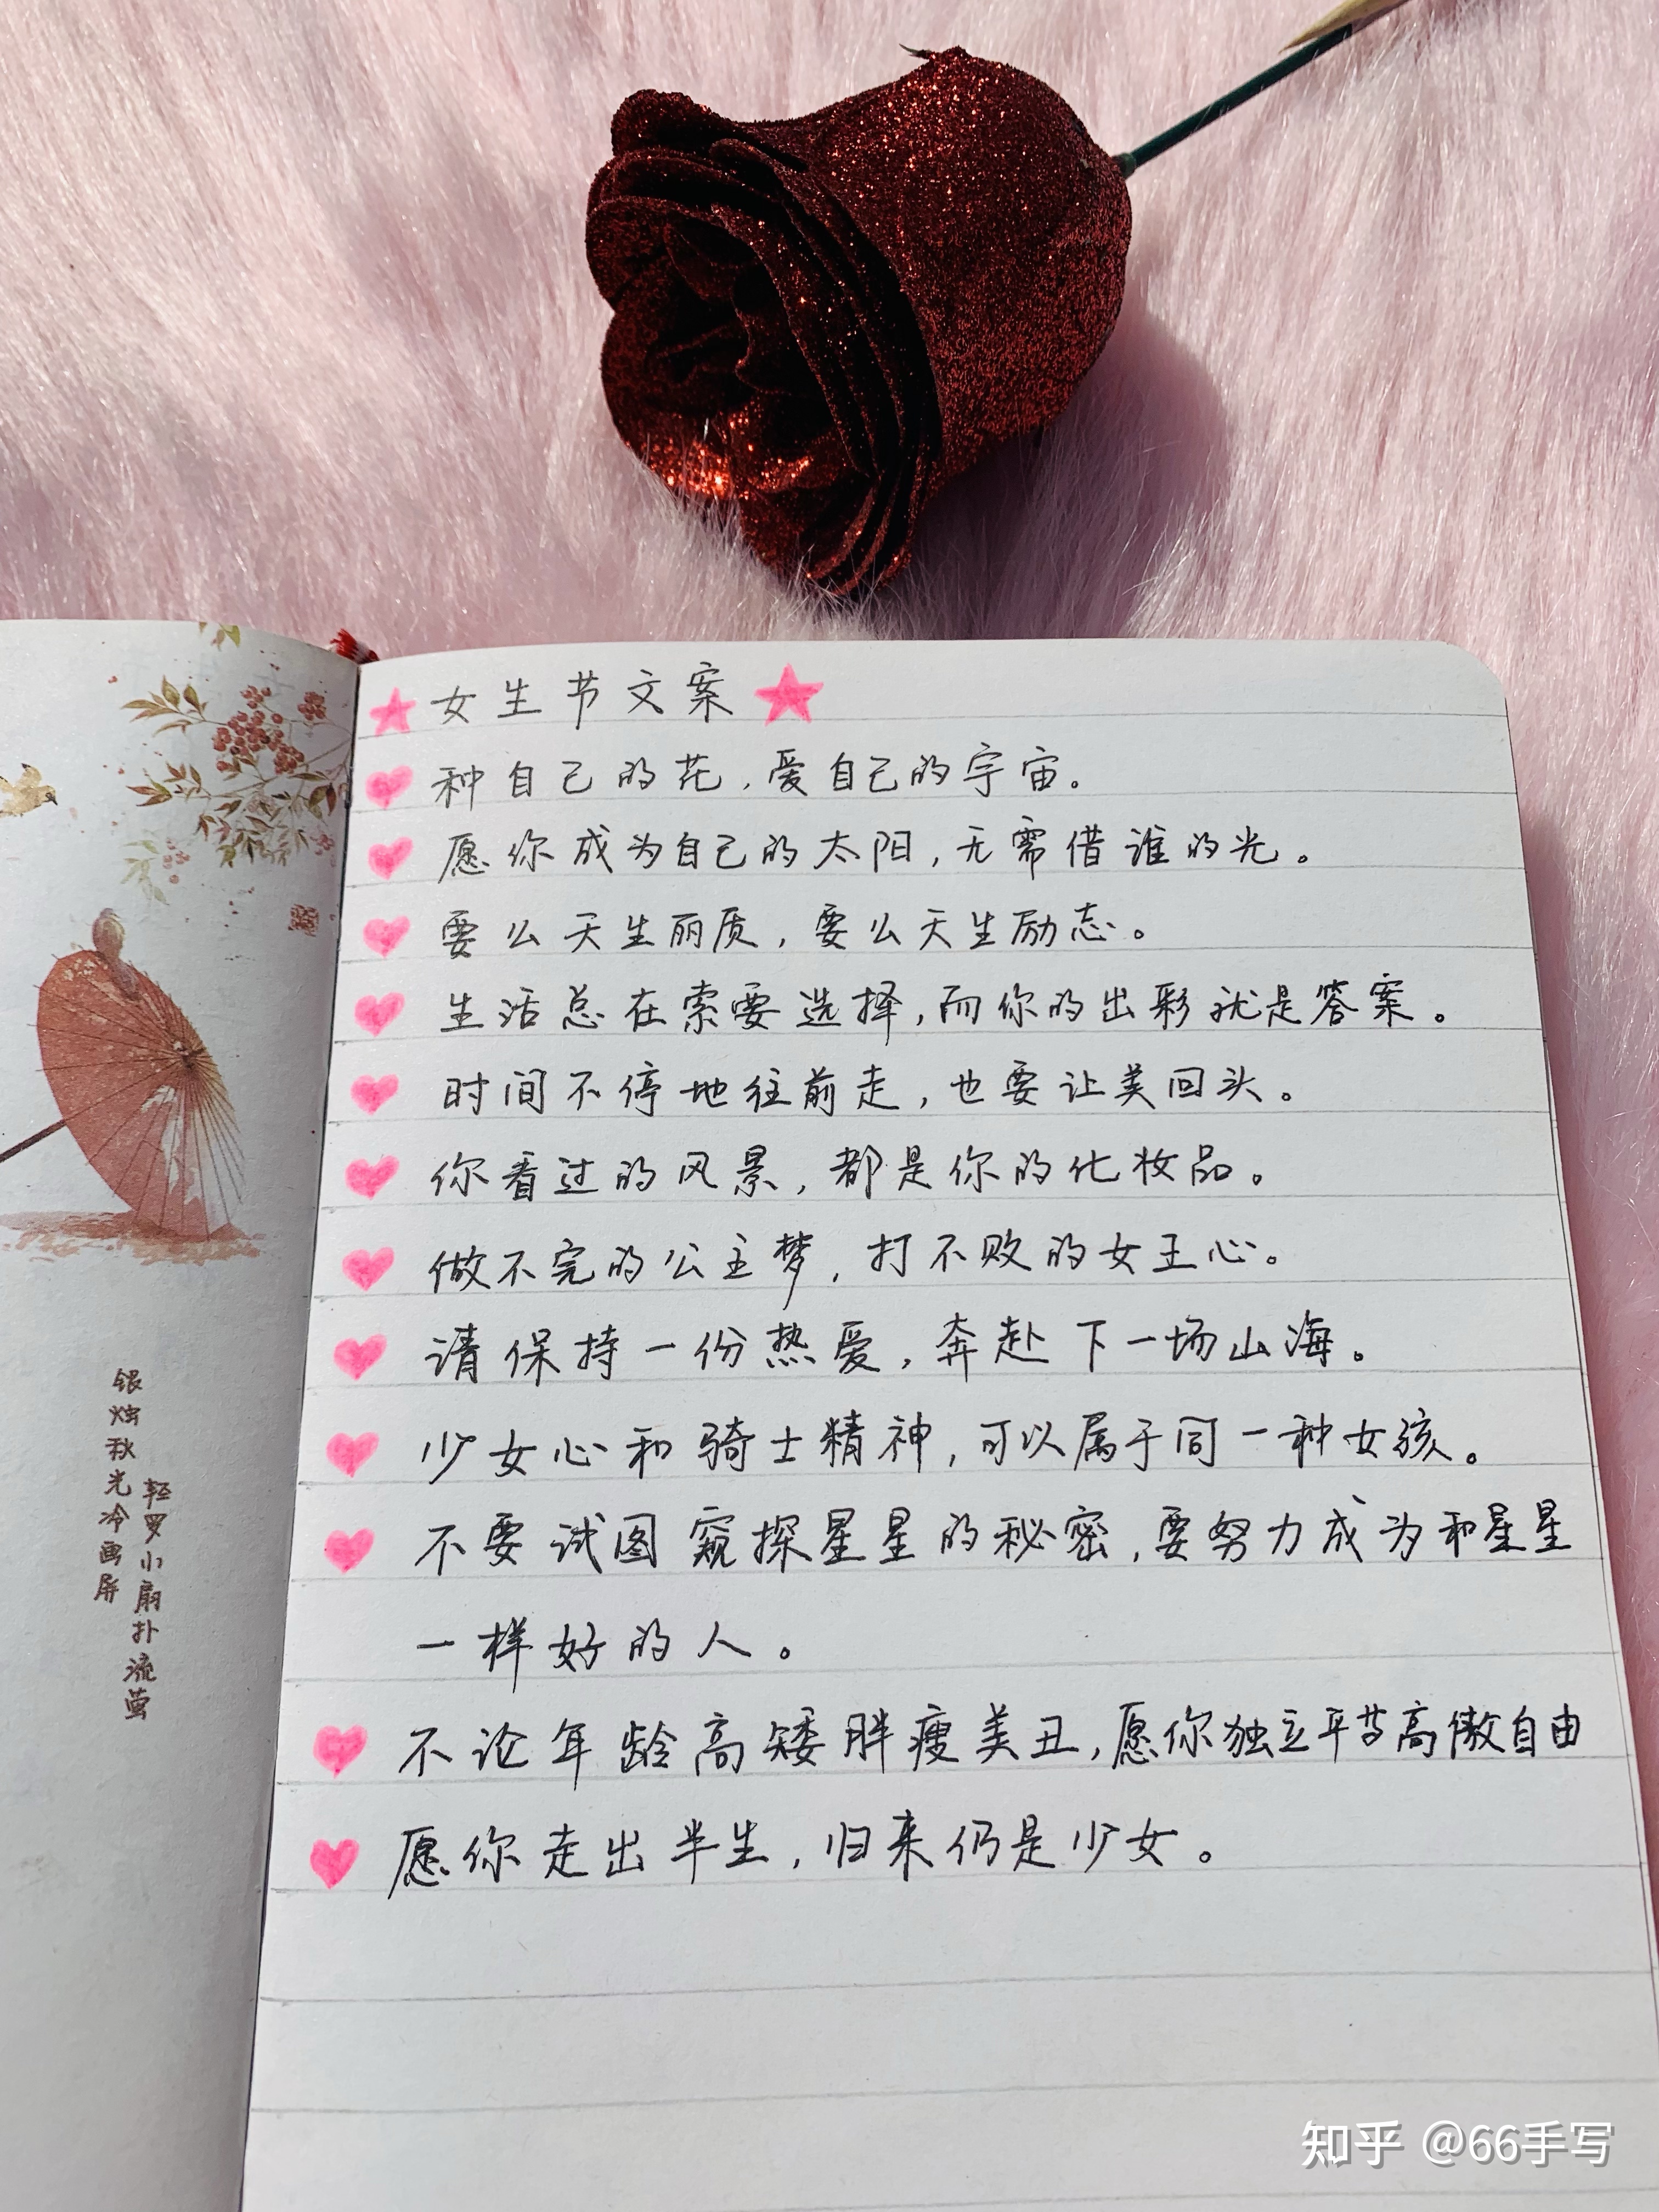 女生节文案
种自己的花,爱自己的宇宙。
愿你成为自己的太阳,无需借谁的光。
要么天生丽质,要么天生励志。
生活总在索要选择,而你的出彩就是答案。
时间不停地往前走,也要让美回头。
你看过的风景,都是你的化妆品。
做不完的公主梦,打不败的女王心。
请保持一份热爱,奔赴下一场山海。
少女心和骑士精神,可以属于同一种女孩。
不要试图窥探星星的秘密,要努力成为和星星
一样好的人。
不论年龄高矮胖瘦美丑,愿你独立平芳高傲自由
愿你走出半生,归来仍是少女。
银烛秋光冷画屏
轻罗小扇扑流萤
知乎 @66手写